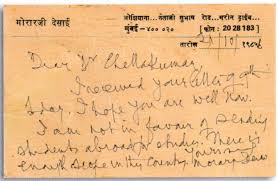 मोरारजी देसाई
ओशियाना, नेताजी सुभाष रोड, मरीन ड्राईव,
मुंबई-४०० ०२० [ फोन : 20 28 183 ]
तारीख 28/10/ १९८
Dear Mr Chellakumar,
I received your letter of 9th
I hope you are well now.
I am not in favour of sending
students abroad for study. There is
enough scope in this Country.
Yours
Morarji Desai